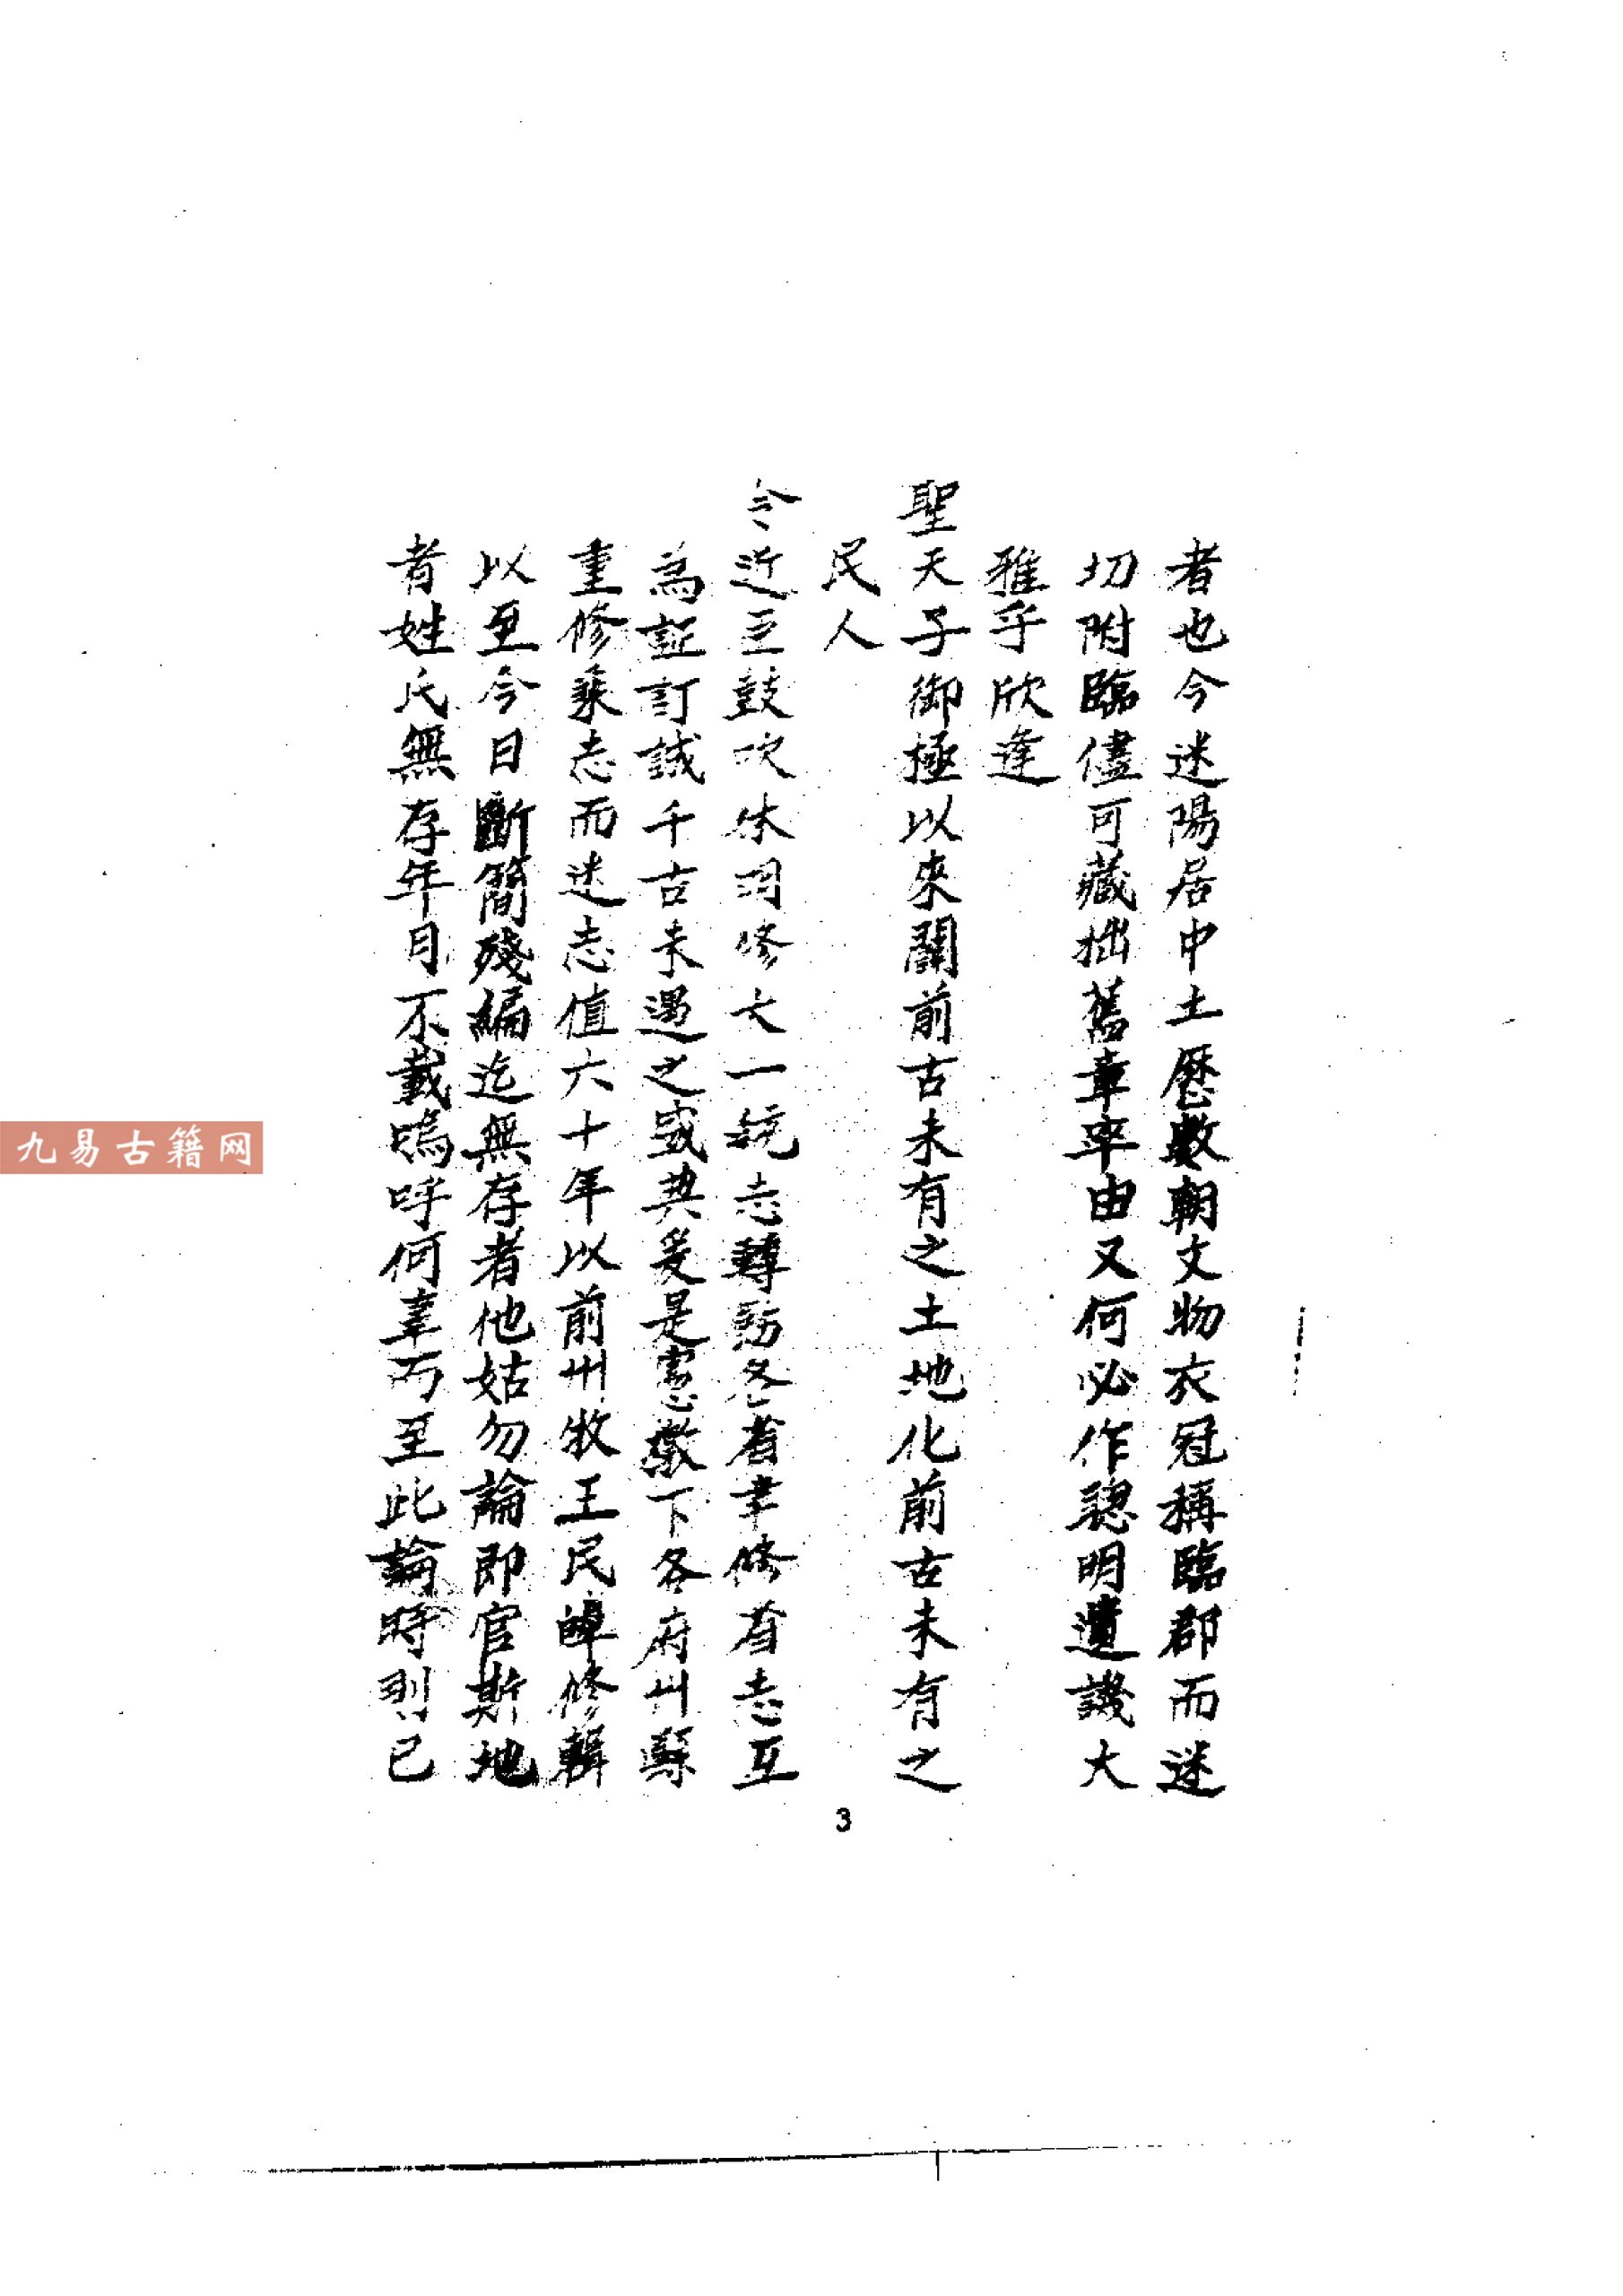 者也今迷陽居中土歷數朝文物衣冠稱臨郡而迷
切附臨儘可藏拙舊章率由又何必作聰明遺譏大
雅乎欣逢
聖天子御極以來闢前古未有之土地化前古未有之
民人
令近臣鼓吹休明修大一統志轉飭各省聿修省志互
為証訂誠千古未遇之盛典爰是憲檄下各府州縣
重修乘志而迷志值六十年以前州牧王民皥修輯
以至今日斷簡殘編迄無存者他姑勿論即官斯地
者姓氏無存年月不載嗚呼何辜而至此論時則已
3
九易古籍网